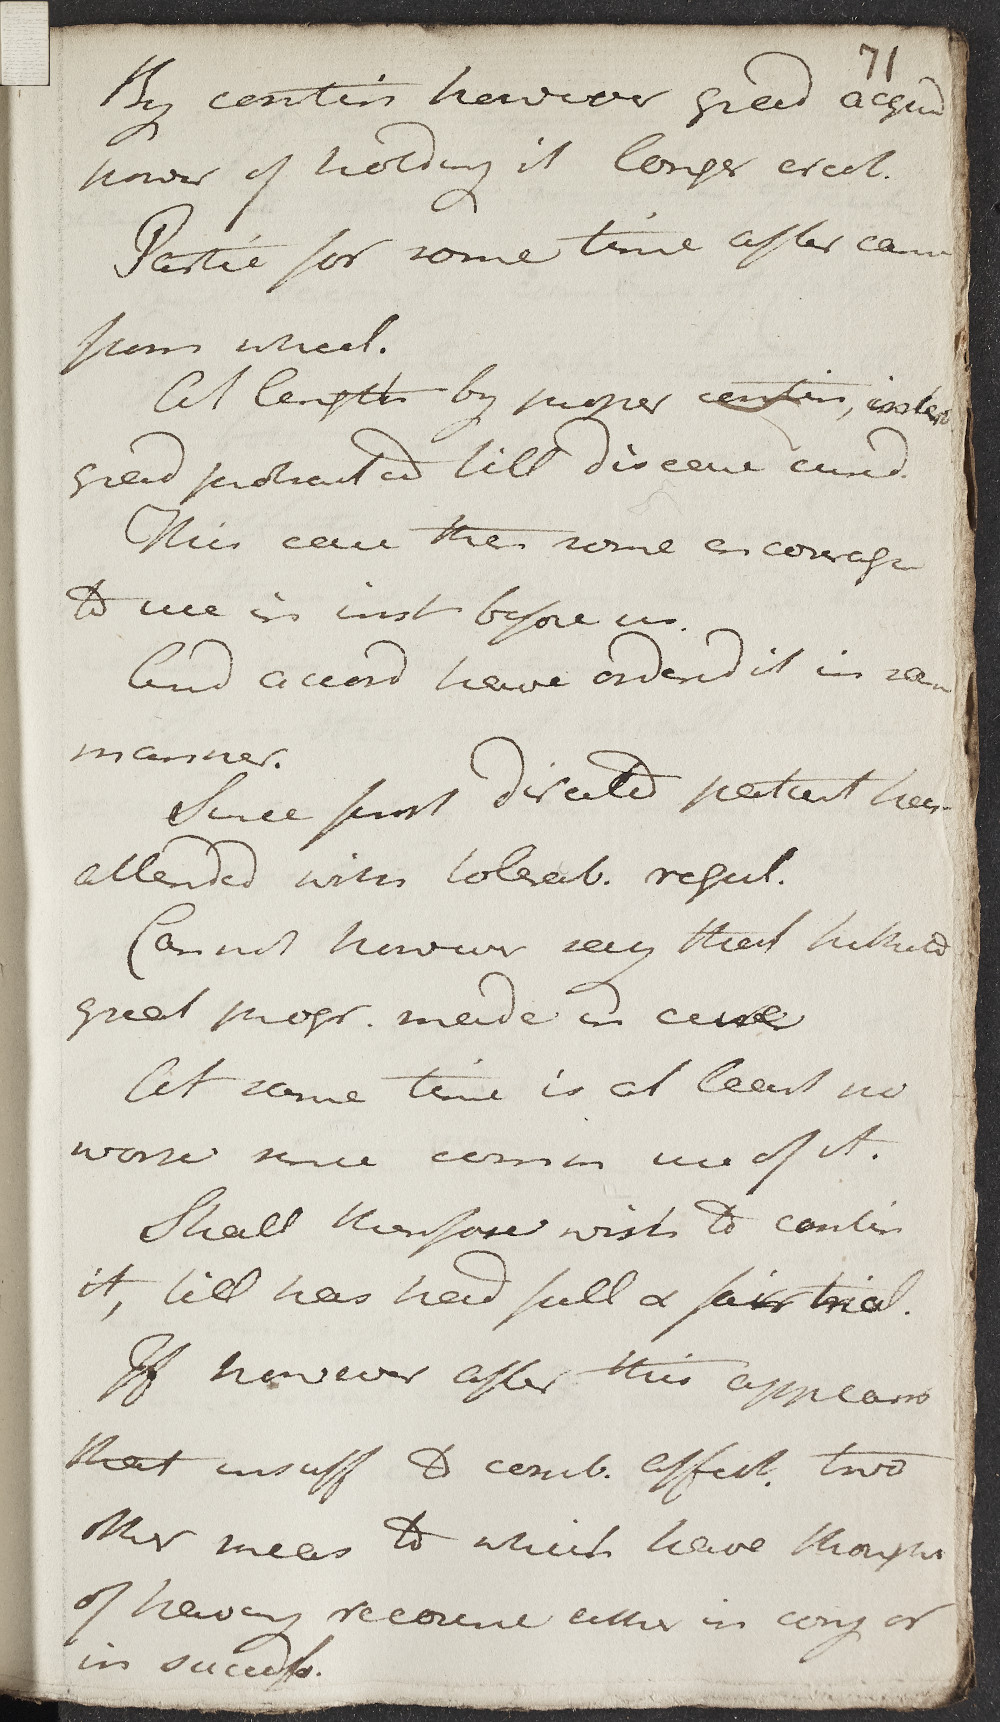 71
By contin however grad acquid
power of holding it longer erect.
Partic for some time after came
from wheel.
At length by proper contin,
grad protracted till disease cured.
This case then some encourage
to use in inst before us.
And accord have ordered it in same
manner.
Since first directed patient has
attended with tolerab. regul.
Cannot however say that hitherto
great progr. made in cure
At same time is at least no
worse since commn use of it.
Shall therefore wish to contin
it, till has had full & fair trial.
If however after this appears
that insuff to comb. affect. two
other meas to which have thought
of having recourse either in conj or
in success.